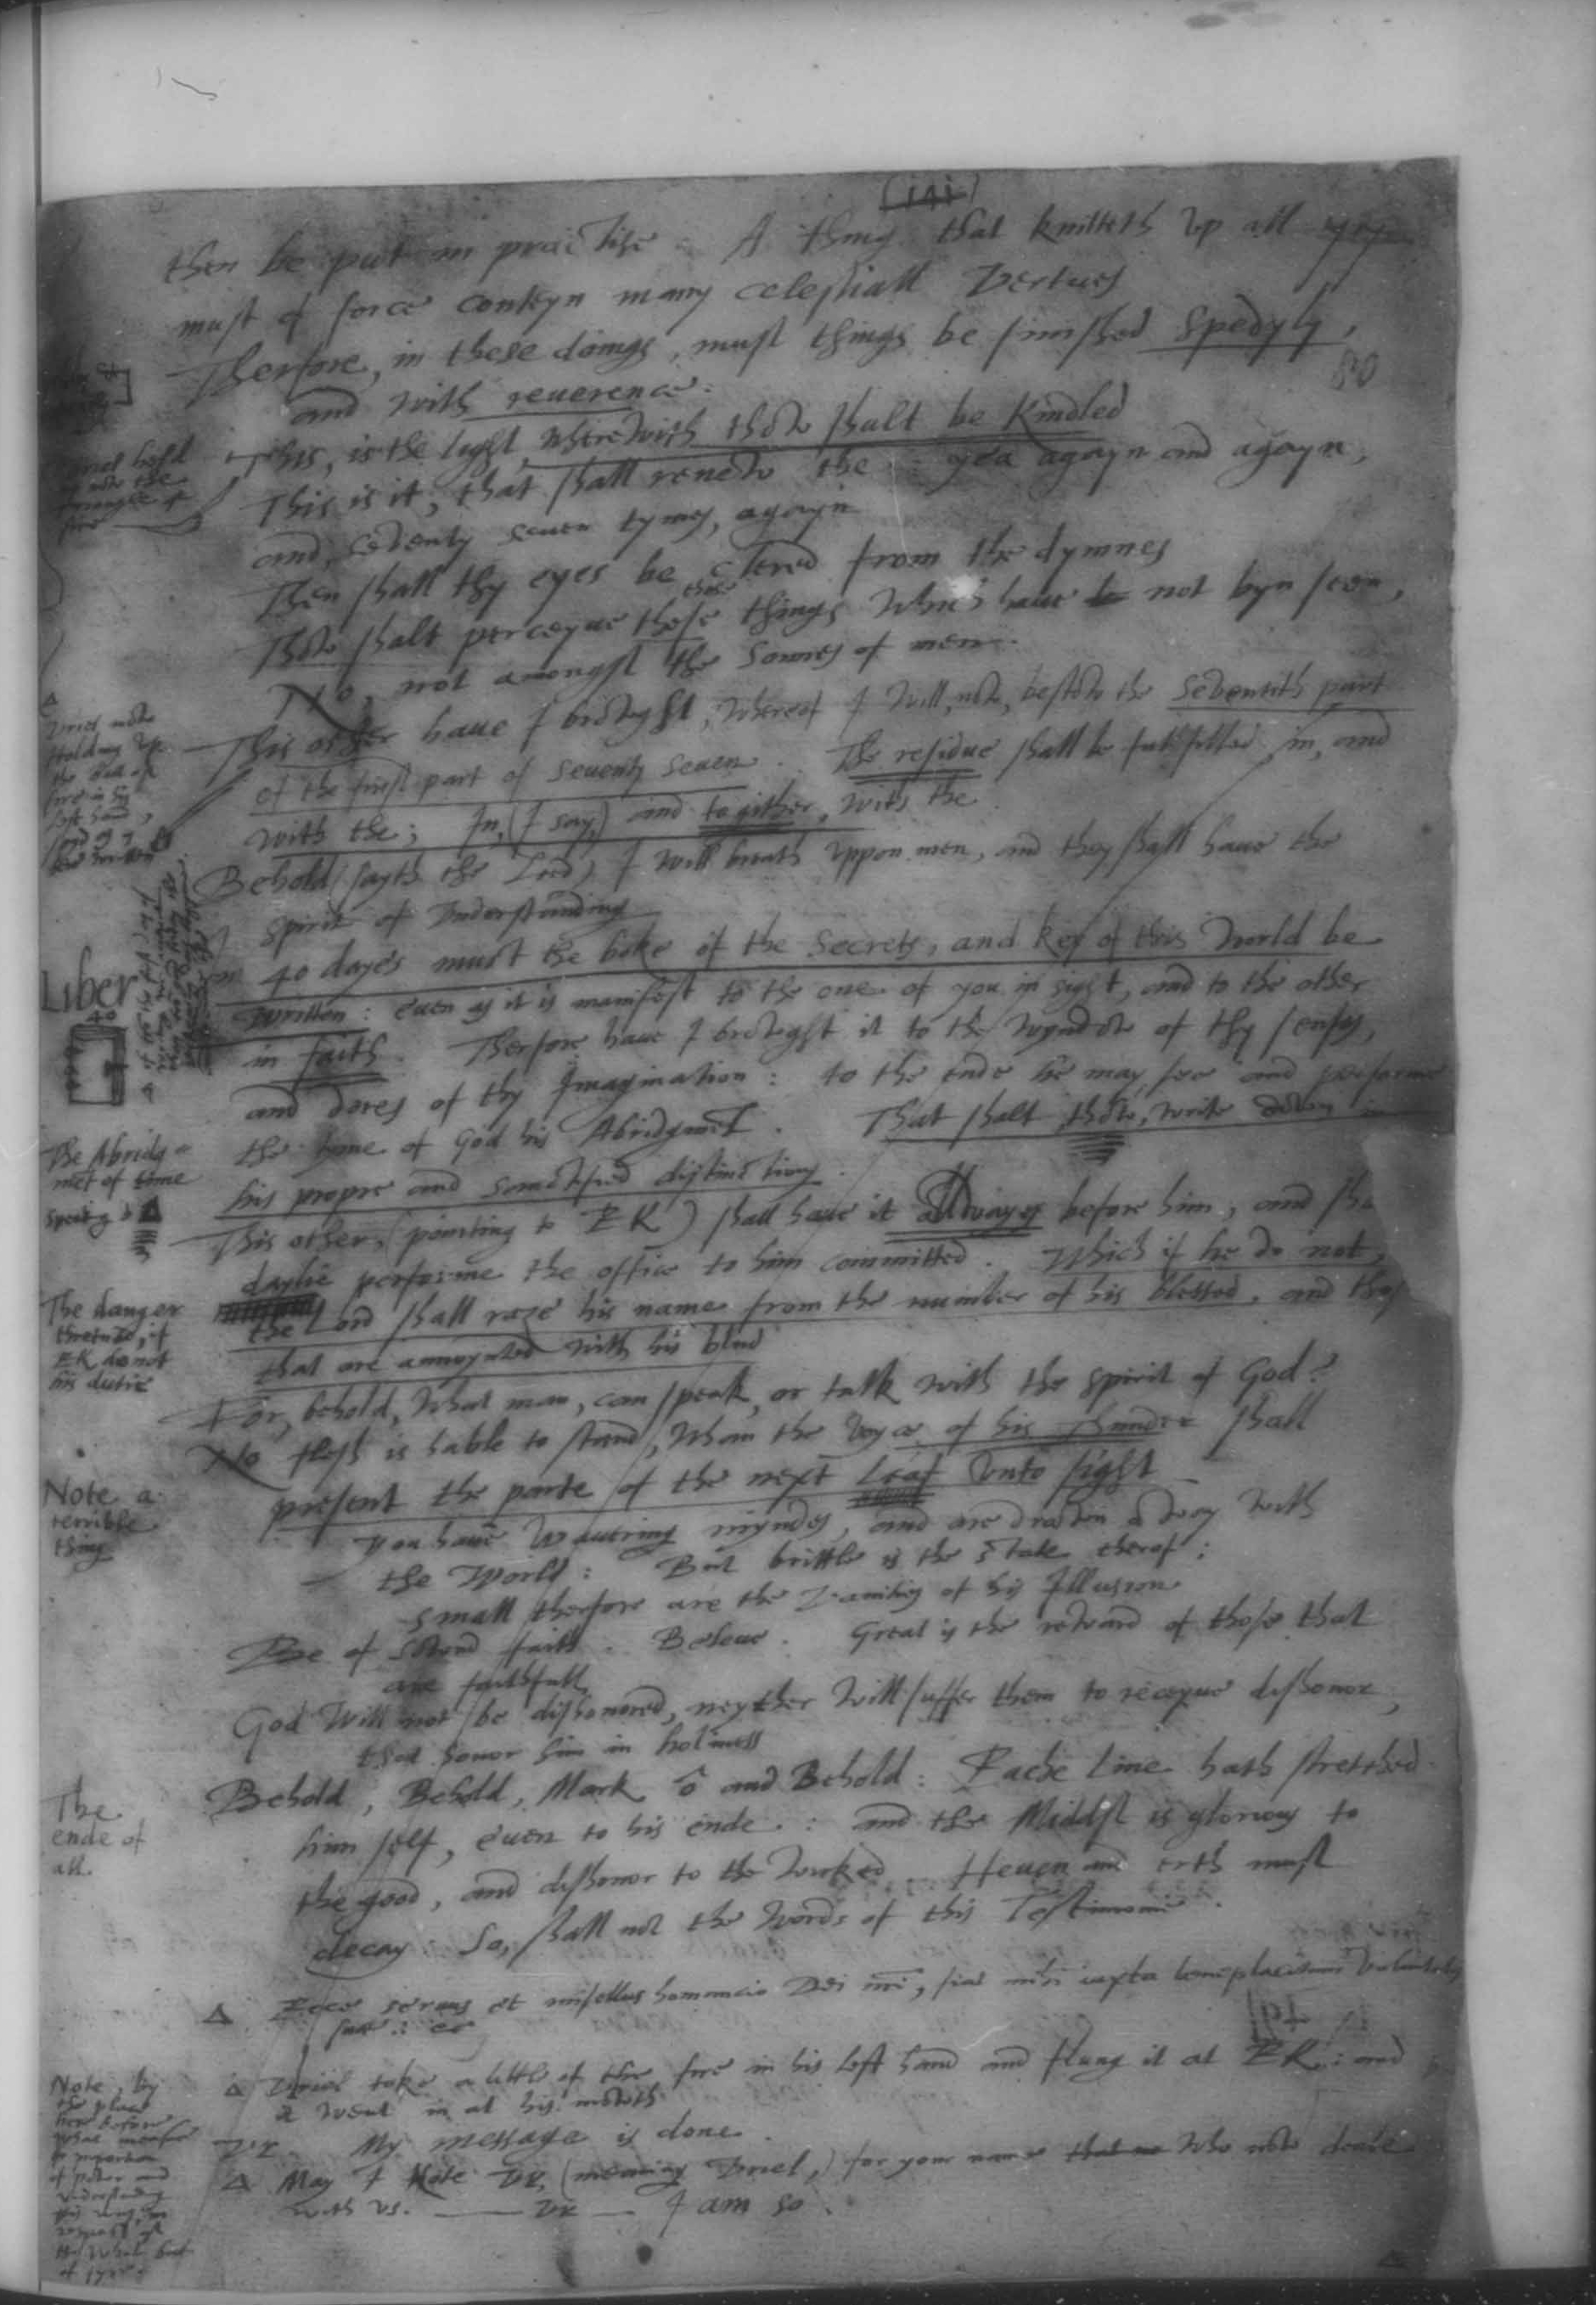 (141)
then be put in practise: A thing that knitteth vp all
must of force conteyn many celestiall Vertues
80
Therfore, in these doings, must things be finished spedyly,
and with reuerence:
This, is the light, wherewith thow shalt be kindled
This is it, that shall renew the: yea agayn and agayn,
and, seventy seuen tymes, agayn
Then shall thy eyes be clered from the dymnes
those
Thow shalt perceyue these things which haue not byn seen,
No, not amongst the Sonnes of men.
This other haue I browght, wherof I will, now, bestow the seventith part
of the first part of seventy seuen. The residue shall be fullfilled, in, and
with the; In, (I say,) and togither, with the.
Behold (sayth the Lord) I will breath vppon men, and they shall haue the
spirit of Vnderstanding
In 40 dayes must the boke of the Secrets, and key of this World be
Written: euen as it is manifest to the one of you in sight, and to the other
in faith. Therfore haue I browght it to the wyndow of thy senses,
and dores of thy Imagination: to the ende he may see and performe
the tyme of God his Abridgment. That shalt thow, write down in
his propre and sanctified distinctions.
This other, (pointing to EK) shall haue it Allwayes before him, and sha
daylie performe the office to him committed. Which if he do not,
the Lord shall raze his name from the number of his blessed, and those
that are annoynted with his blud
For, behold, what man, can speak, or talk with the spirit of God?
No flesh is hable to stand, whan the voyce of his Thunder shall
present the parte of the next Leaf vnto sight
You haue wauering myndes, and are drawen away with
the World: But brittle is the state therof:
Small therfore are the Vanities of his Illusion
Be of sownd faith. Beleue. Great is the reward of those that
are faithfull
God Will not be dishonored, neyther will suffer them to receyue dishonor,
that honor him in holiness
Behold, Behold, Mark ô and Behold: Eache line hath stretched
him self, euen to his ende: and the Middst is glorious to
the good, and dishonor to the wicked. Heuen and erth must
decay: So, shall not the words of this Testimonie.
Δ Ecce seruus et misellus homuncio Dei nri, fiat mihi iuxta beneplacitum Voluntatis
suæ: &c
Δ Vriel toke a little of the fire in his left hand and flung it at EK: and
it went in at his mowth
VR. My message is done.
Δ May I Note VR, (meaning Vriel,) for your name who now deale
with vs. — VR — I am so.
now the
triangle of
fire
Δ
Vriel now
Holding vp
the ball of
fire in his
left hand,
Liber
40
The Abridg=
met of time
Speaking to Δ
The danger
thretned, if
EK do not
his dutie
Note a
terrible
thing
The
ende of
all.
Note, by
the place
here before
what measure
or proportion
of powr and
vnderstanding